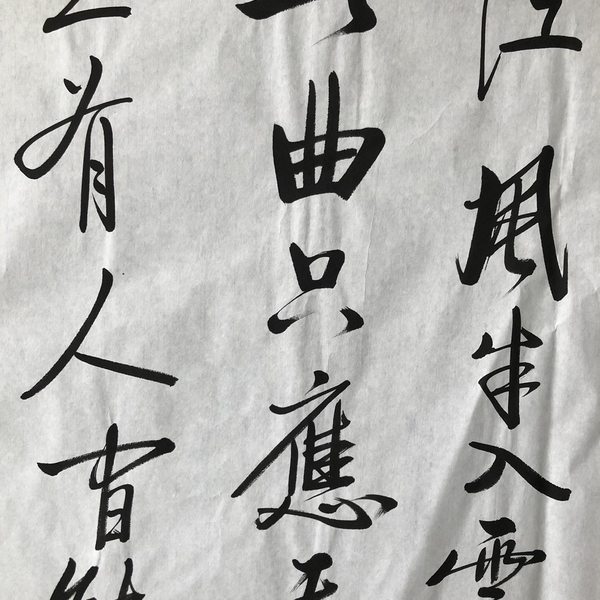 江風半入雲
曲只應天
上有人間